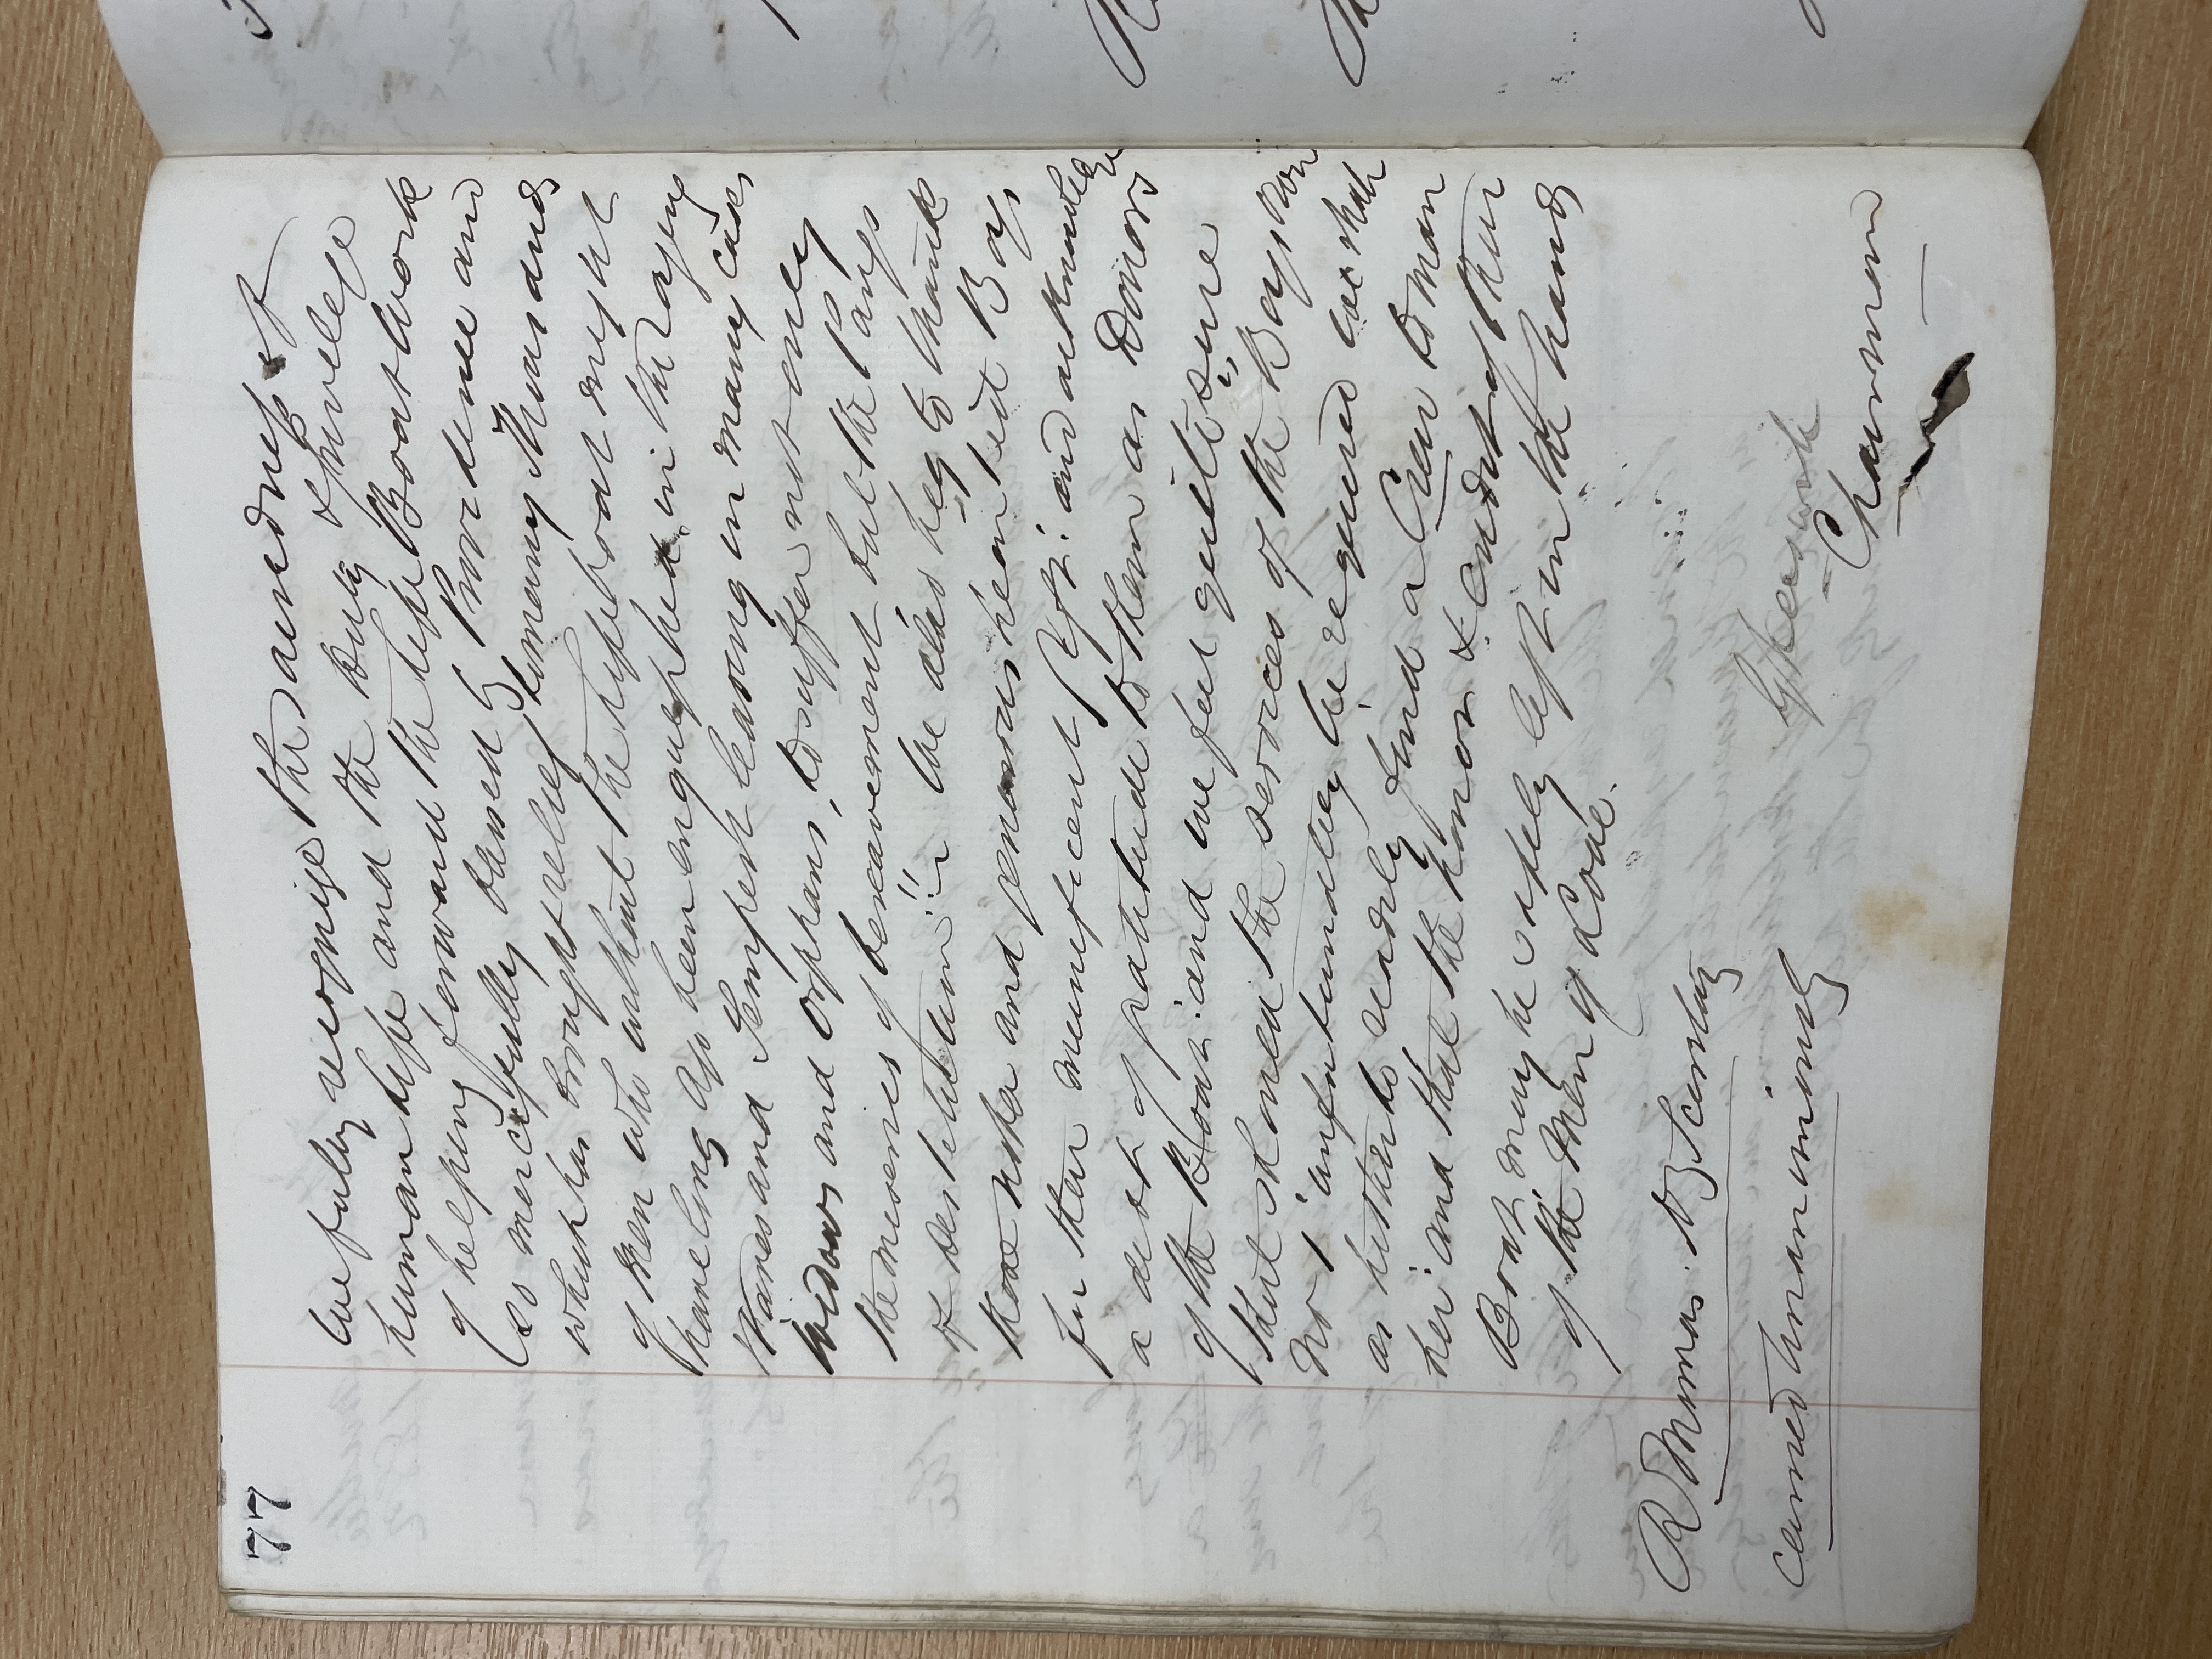 77
We fully recognise the sacredness of
human life and the duty & privilege
of helping forward the life Boat work
so mercifully blessed by Providence and
which has brought relief to many thousands
of men who without the lifeboat might
have long ago been engulphed in the raging
waves and Tempest leaving in many cases
widows and orphans, to suffer not only
the miseries of bereavement but the Pangs
of destitution: We also beg to thank
those noble and generous hearted Boys
for their munificent Gift: and acknowledge
a debt of gratitude to them as Donors
of the Boat: and we feel quite sure
that should the services of the Boys own
No 1 unfortunately be required we shall
as hitherto readily find a Crew to man
her and that the honor & credit of their
Boat may be safely left in the hands
of the Men of Looe.
R Thomas. Hy Secretary
Carried Unanimously
Chairman